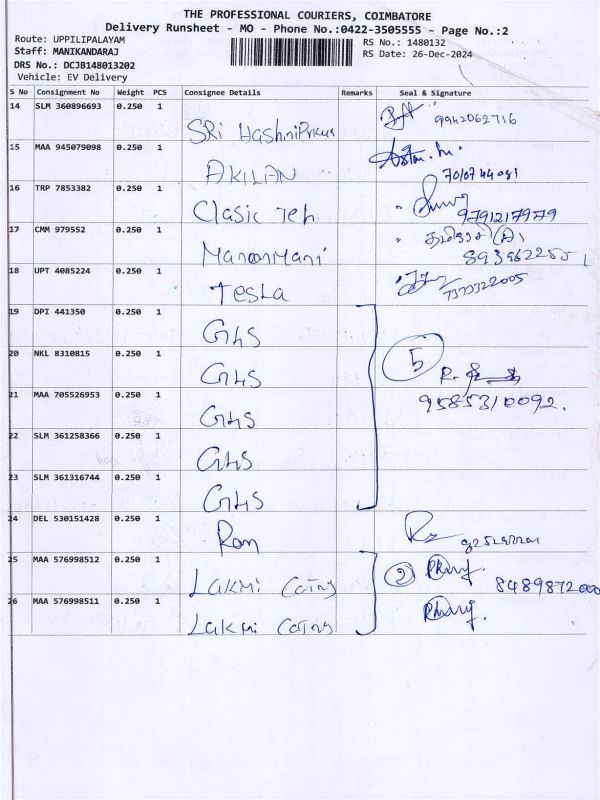 THE PROFESSIONAL COURIERS, COIMBATORE
Delivery Runsheet - MO - Phone No.:0422-3505555 - Page No.:2
Route: UPPILIPALAYAM
Staff: MANIKANDARAJ
RS No.: 1480132
RS Date: 26-Dec-2024
DRS No.: DCJB148013202
Vehicle: EV Delivery
S No Consignment No Weight PCS Consignee Details Remarks Seal & Signature
14 SLM 360896693 0.250 1 SRi 9942062716
15 MAA 945079098 0.250 1 AKILAN
16 TRP 7853382 0.250 1 Clasic Teh 9791217979
17 CMM 979552 0.250 1 ManonMani
18 UPT 4085224 0.250 1 Tesla 7373322005
19 DPI 441350 0.250 1 GHS
20 NKL 8310815 0.250 1 GHS 5
21 MAA 705526953 0.250 1 GHS 9585310092.
22 SLM 361258366 0.250 1 GHS
23 SLM 361316744 0.250 1 GHS
24 DEL 530151428 0.250 1 Ram
25 MAA 576998512 0.250 1 Lakmi 2
26 MAA 576998511 0.250 1 Lakmi